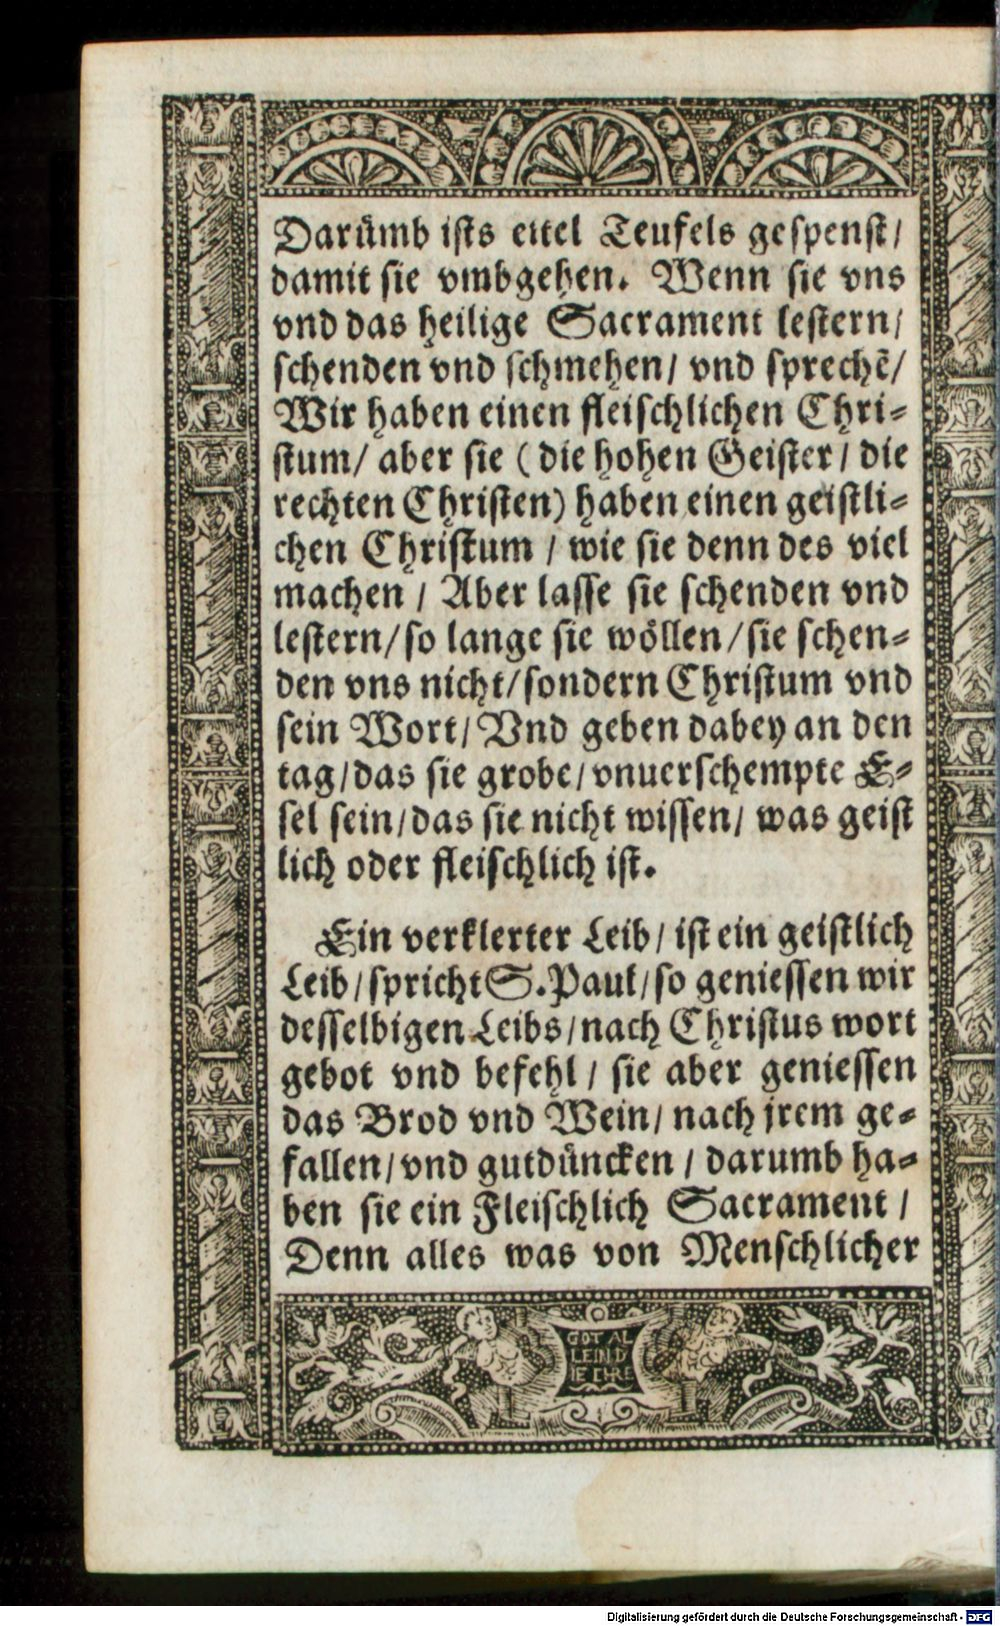 Darümb ists eitel Teufels gespenst/
damit sie vmbgehen. Wenn sie vns
vnd das heilige Sacrament lestern/
schenden vnd schmehen/ vnd sprechē/
Wir haben einen fleischlichen Chri-
stum/ aber sie (die hohen Geister/ die
rechten Christen) haben einen geistli-
chen Christum / wie sie denn des viel
machen / Aber lasse sie schenden vnd
lestern/ so lange sie wöllen/ sie schen-
den vns nicht/ sondern Christum vnd
sein Wort/ Vnd geben dabey an den
tag/ das sie grobe/ vnuerschempte E-
sel sein/ das sie nicht wissen/ was geist
lich oder fleischlich ist.
Ein verklerter Leib/ ist ein geistlich
Leib/ spricht S. Paul/ so geniessen wir
desselbigen Leibs/ nach Christus wort
gebot vnd befehl / sie aber geniessen
das Brod vnd Wein/ nach jrem ge-
fallen/ vnd gutdüncken / darumb ha-
ben sie ein Fleischlich Sacrament /
Denn alles was von Menschlicher
GOT AL
LEIN D
IE EHRE
Digitalisierung gefördert durch die Deutsche Forschungsgemeinschaft - DFG